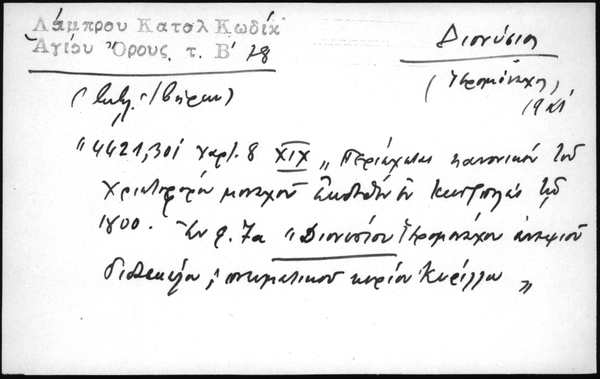 Λάμπρου Καταλ Κωδίκ
Ἁγίου Ὄρους. τ. Β' 78
Διονύσιος
(Ἱερομόναχος)
19
(Ἰβήρων)
"4421,301 χαρτ. 8 XIX "Περιέχεται κανονικόν τοῦ
Χριστοφόρου μοναχοῦ ἐκδοθὲν ἐν Κων)πόλει τῷ
1800. Ἐν φ. 7α "Διονυσίου Ἱερομονάχου ἀνεψιοῦ
διδασκάλου, πνευματικοῦ κυρίου Κυρίλλου "